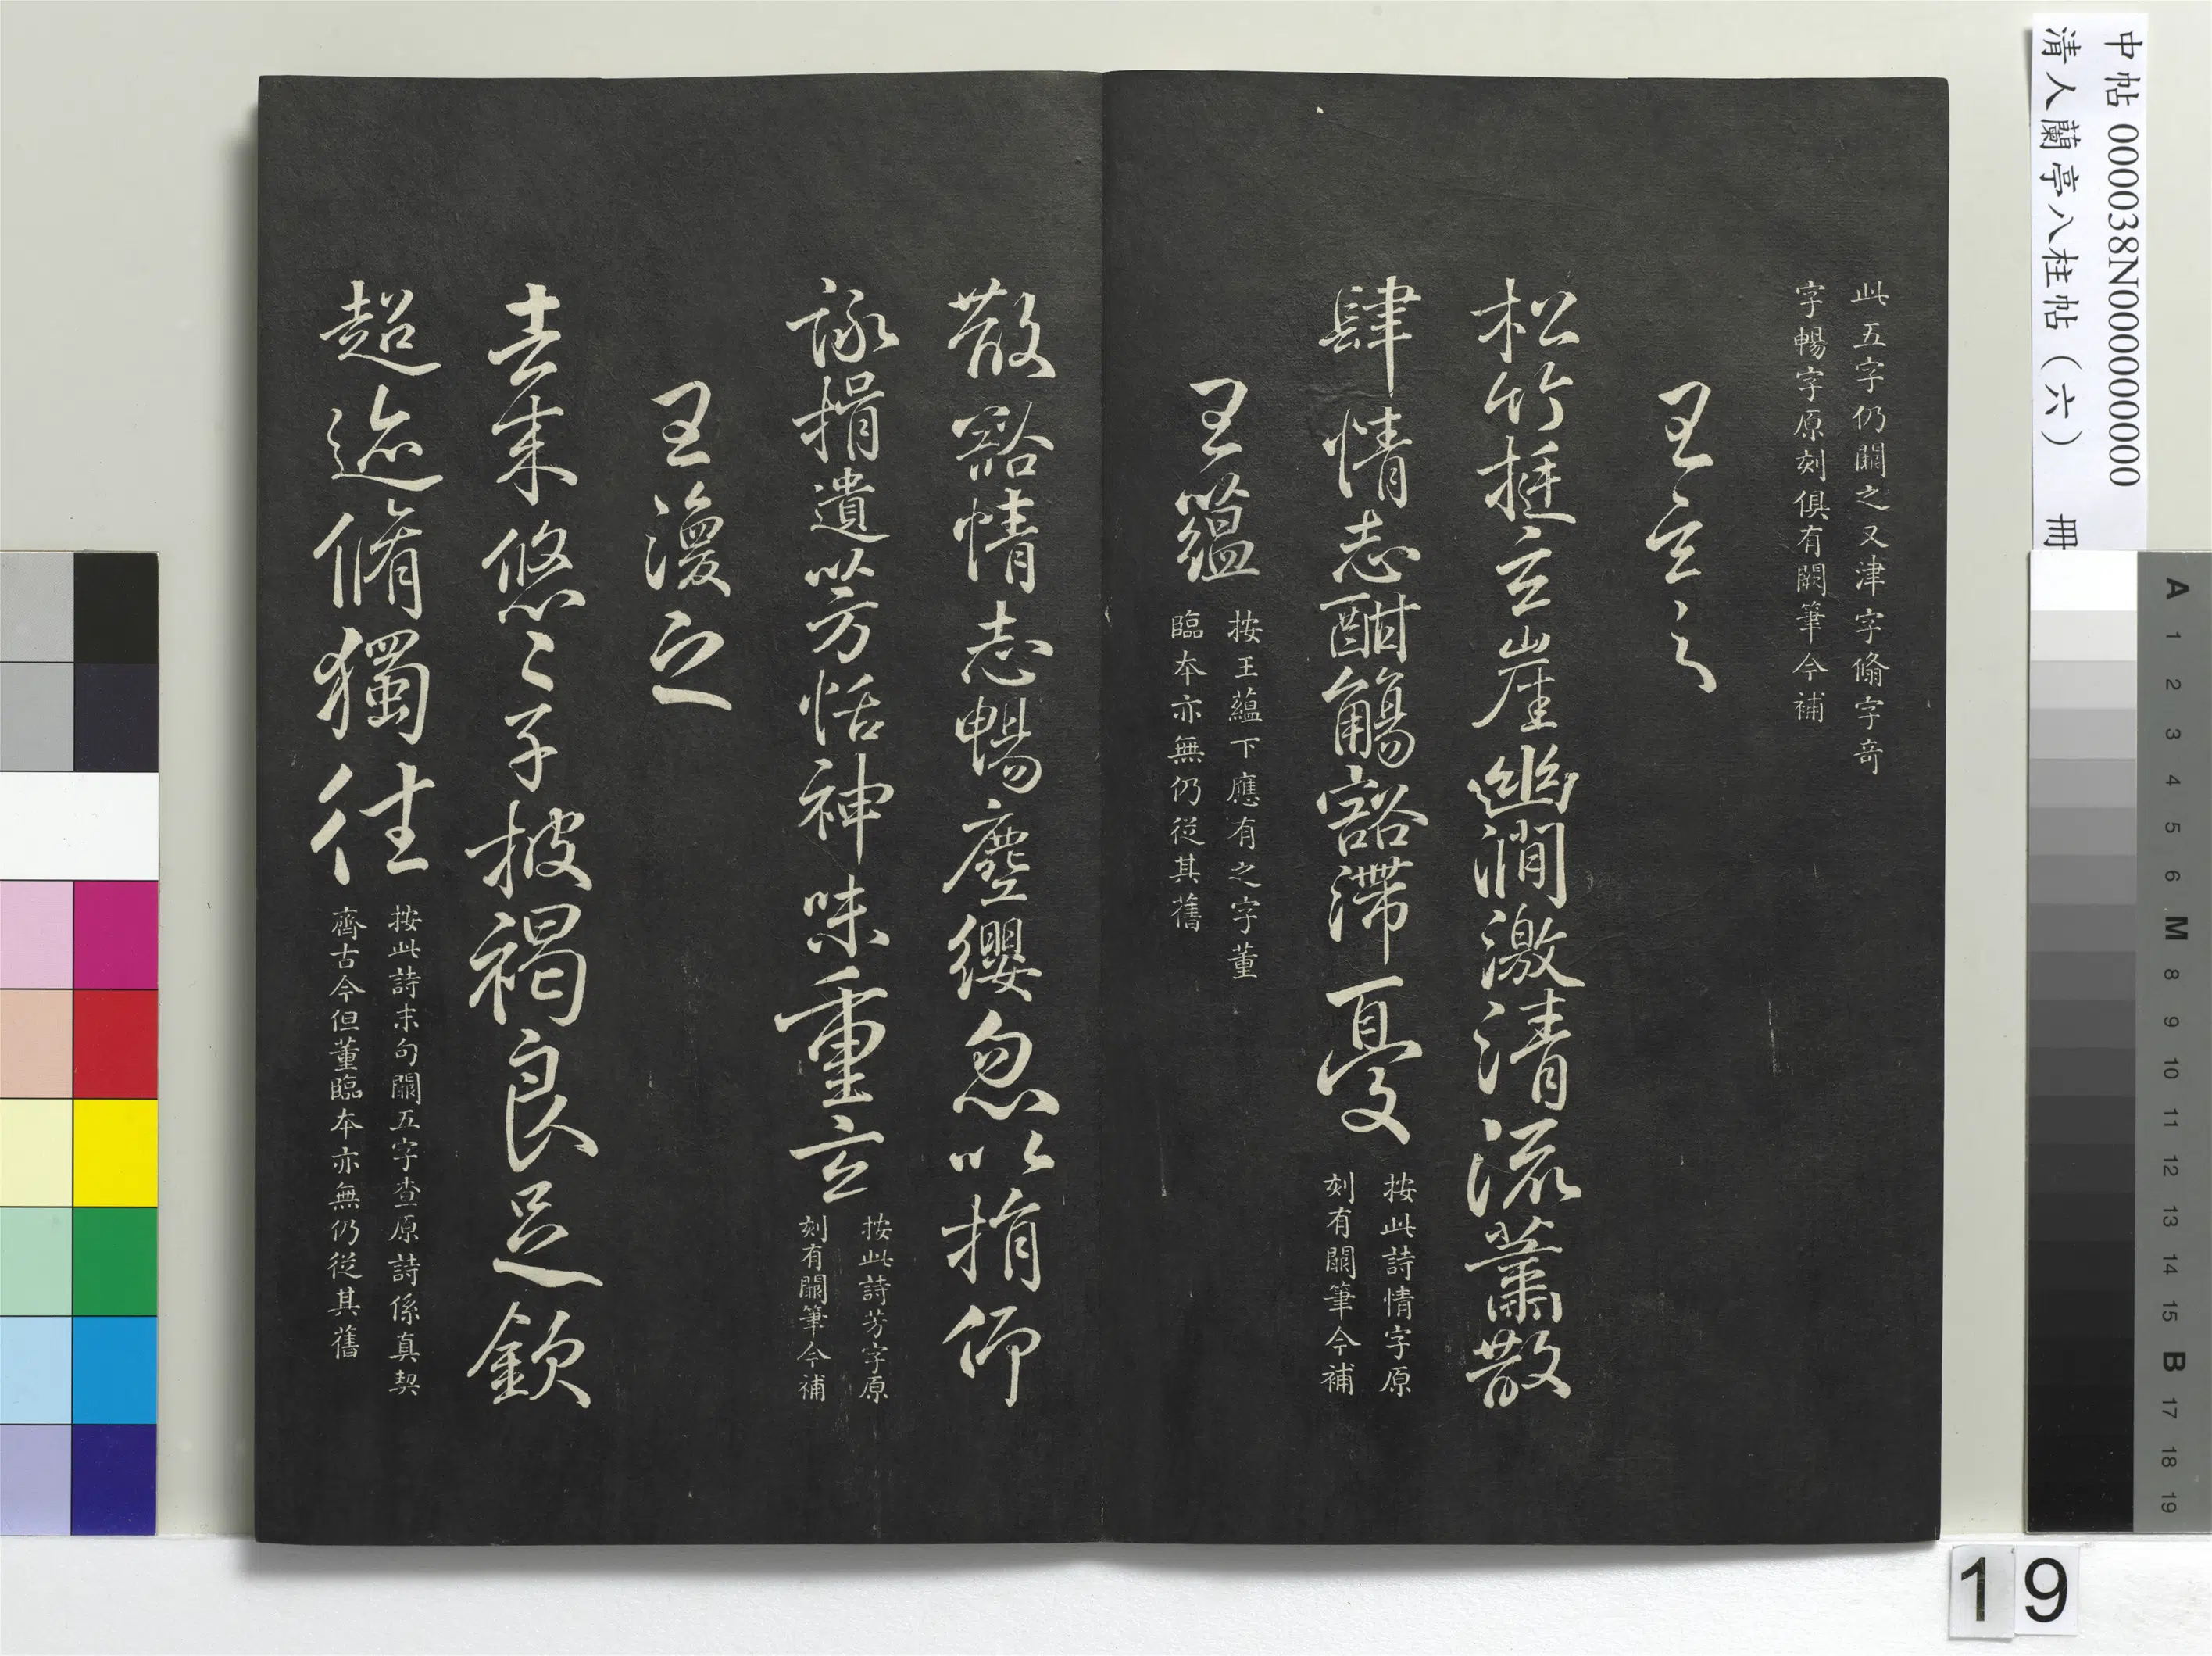 中帖 000038N000000000
清人蘭亭八柱帖（六） 冊
此五字仍闕之又津字脩字奇
字暢字原刻俱有闕筆今補
王玄之
松竹挺玄崖幽澗激清流蕭散
肆情志酣觴豁滯憂
按此詩情字原
刻有闕筆今補
王蘊
按王蘊下應有之字董
臨本亦無仍從其舊
散豁情志暢塵纓忽以捐仰
詠揖遺芳恬神味重玄
按此詩芳字原
刻有闕筆今補
王渙之
去来悠〻子披褐良足欽
超迹脩獨往
按此詩末句闕五字查原詩係真契
齊古今但董臨本亦無仍從其舊
A 1 2 3 4 5 6 M 8 9 10 11 12 13 14 15 B 17 18 19
19